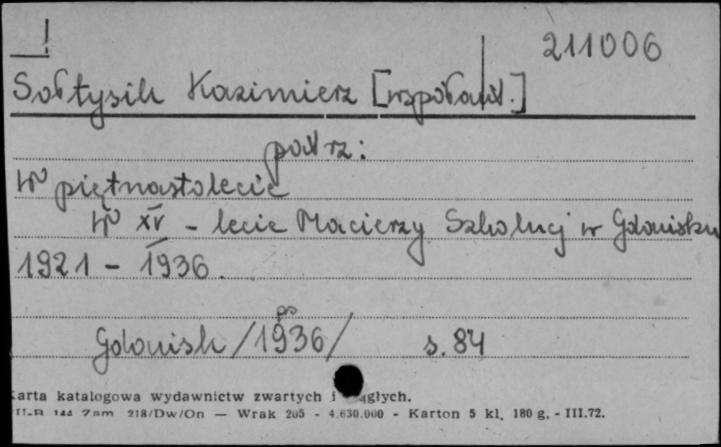 211006
Sołtysik Kazimierz [współaut.]
patrz:
W piętnastolecie
W XV - lecie Macierzy Szkolnej w Gdańsku
1921 - 1936.
Gdańsk /1936/ s. 84
Karta katalogowa wydawnictw zwartych i ciągłych.
144 Zam. 218/Dw/On — Wrak 205 - 4.630.000 - Karton 5 kl. 180 g. - III.72.